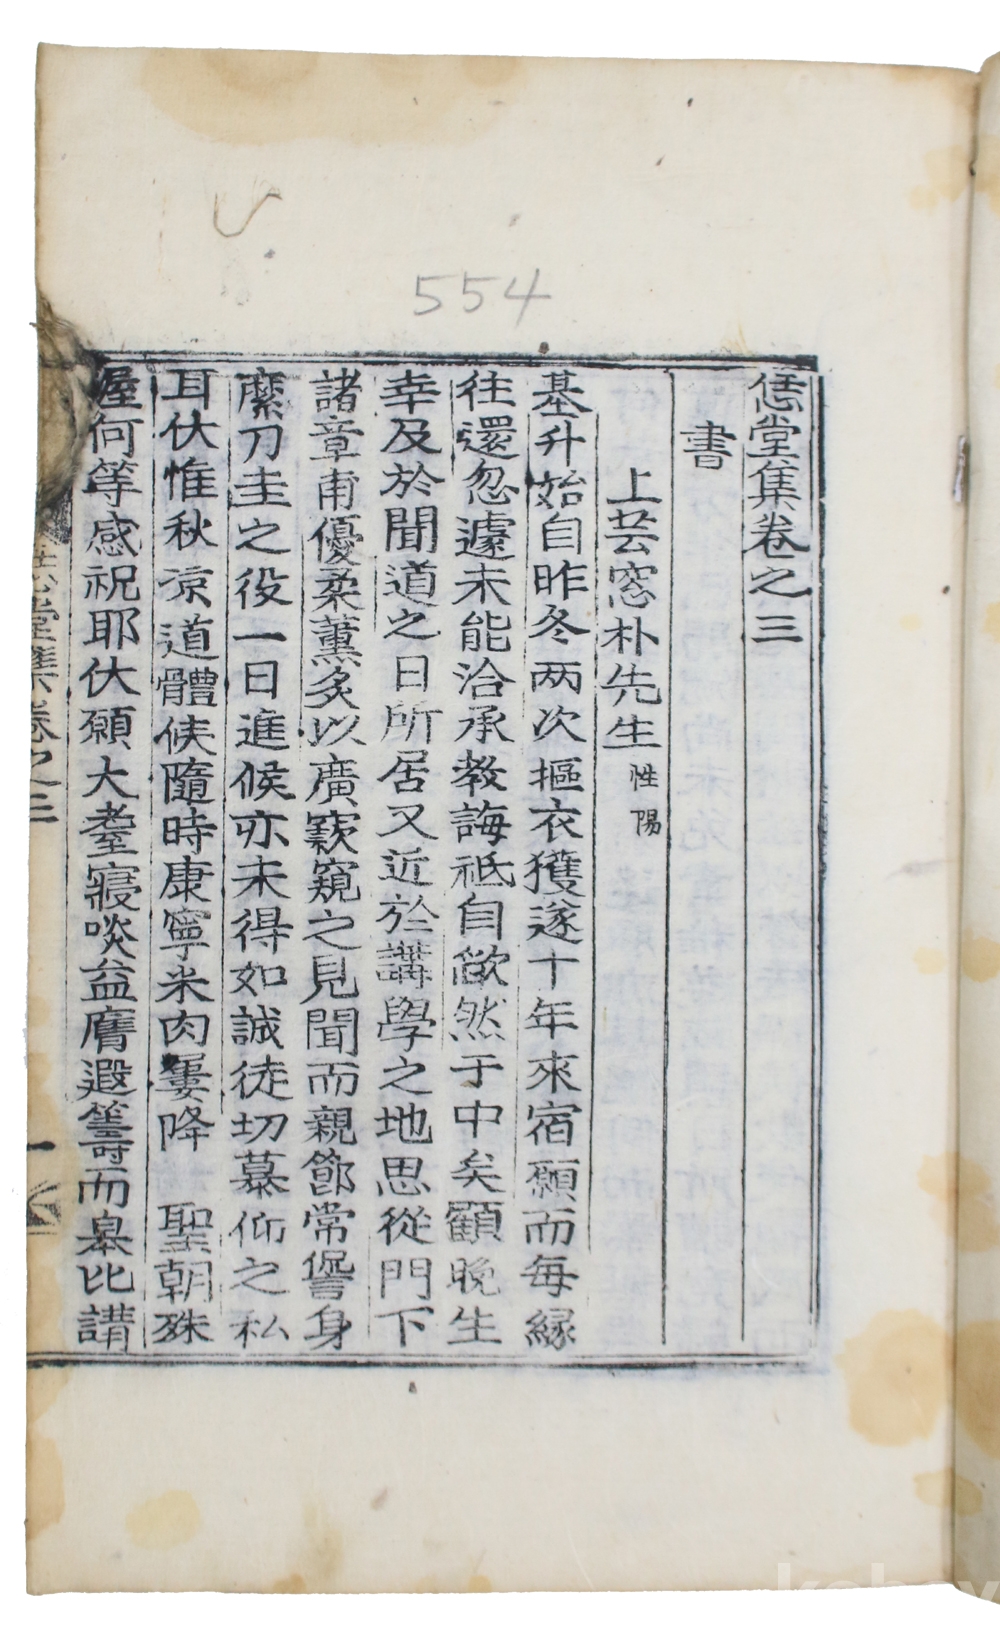 554
恁堂集卷之三
書
上芸窓朴先生 性陽
基升始自昨冬两次摳衣獲遂十年來宿願而每緣
往還忽遽未能洽承教誨祗自歉然于中矣顧晩生
幸及於聞道之日所居又近於講學之地思從門下
諸章甫優柔薰炙以廣窾窺之見聞而親節常㘅身
縻刀圭之役一日進候亦未得如誠徒切慕仰之私
耳伏惟秋凉道體候隨時康寧米肉屢降 聖朝殊
渥何等感祝耶伏願大耋寢啖益膺遐籌而皋比講
堂集卷之三 一